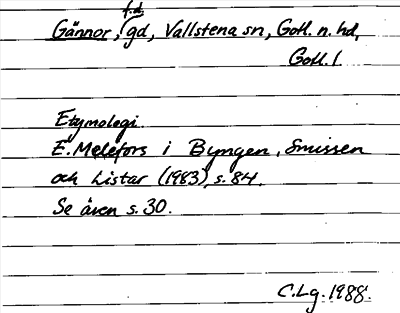 f.d.
Gännor, gd, Vallstena sn, Gotl. n. hd,
Gotl. l
Etymologi
E. Melefors i Byngen, Smissen
och Listar (1983), s. 84.
Se även s. 30.
C.Lg. 1988.